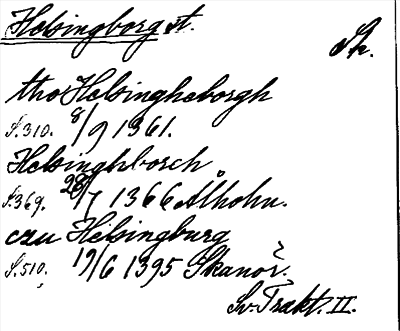 Helsingborg st.
Sk.
tho Helsingheborgh
S.310. 8/9 1361.
Helsinghborch
S.369. 28/7 1366 Ålholm.
czu Helsingburg
S.510. 19/6 1395 Skanör.
Sv. Trakt. II.